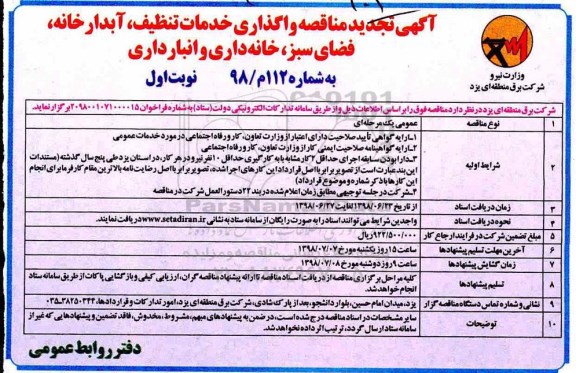 آگهی تجدید مناقصه واگذاری خدمات تنظیف، آبدارخانه،
فضای سبز، خانه داری و انبارداری
به شماره ۱۱۲م/۹۸ نوبت اول
وزارت نیرو
شرکت برق منطقه‌ای یزد
شرکت برق منطقه‌ای یزد در نظر دارد مناقصه فوق را بر اساس اطلاعات ذیل و از طریق سامانه تدارکات الکترونیکی دولت (ستاد) به شماره فراخوان ۲۰۹۸۰۰۱۰۷۱۰۰۰۰۱۵ برگزار نماید.
۱ نوع مناقصه عمومی یک مرحله‌ای
۲ شرایط اولیه
۱ـ ارایه گواهی تأیید صلاحیت دارای اعتبار از وزارت تعاون، کار و رفاه اجتماعی در مورد خدمات عمومی
۲ـ ارایه گواهینامه صلاحیت ایمنی کار از وزارت تعاون، کار و رفاه اجتماعی
۳ـ دارا بودن سابقه اجرای حداقل ۲ کار مشابه با به کارگیری حداقل ۱۰ نفر نیرو در هر کار، در استان یزد طی پنج سال گذشته (مستندات
این بند عبارت است از تصویر برابر با اصل قرارداد این کارهای اجرا شده، تصویر برابر با اصل رضایت نامه بالاترین مقام کارفرما برای انجام
این کارها با ذکر شماره و موضوع قرارداد)
۴ـ شرکت در جلسه توجیهی مطابق زمان اعلام شده در بند ۲۲ دستورالعمل شرکت در مناقصه
۳ زمان دریافت اسناد از تاریخ ۱۳۹۸/۰۶/۲۳ لغایت ۱۳۹۸/۰۶/۲۷
۴ نحوه دریافت اسناد واجدین شرایط می توانند اسناد را به صورت رایگان از سامانه ستاد به نشانی www.setadiran.ir دریافت نمایند.
۵ مبلغ تضمین شرکت در فرایند ارجاع کار ۹۲۲/۵۰۰/۰۰۰ ریال
۶ آخرین مهلت تسلیم پیشنهادها ساعت ۱۵ روز یکشنبه مورخ ۱۳۹۸/۰۷/۰۷
۷ زمان گشایش پیشنهادها ساعت ۹ روز دوشنبه مورخ ۱۳۹۸/۰۷/۰۸
۸ تسلیم پیشنهادها کلیه مراحل برگزاری مناقصه از دریافت اسناد مناقصه تا ارائه پیشنهاد مناقصه گران، ارزیابی کیفی و بازگشایی پاکات از طریق سامانه ستاد
انجام خواهد شد.
۹ نشانی و شماره تماس دستگاه مناقصه گزار یزد، میدان امام حسین، بلوار دانشجو، بعد از پارک شادی، شرکت برق منطقه‌ای یزد، امور تدارکات و قراردادها، ۰۳۵ـ۳۸۲۵۰۳۴۴
۱۰ توضیحات سایر مشخصات در اسناد مناقصه درج شده است، در ضمن به پیشنهادهای مبهم، مشروط، مخدوش، فاقد تضمین و پیشنهادهایی که غیر از
سامانه ستاد ارسال گردد، ترتیب اثر داده نخواهد شد.
دفتر روابط عمومی